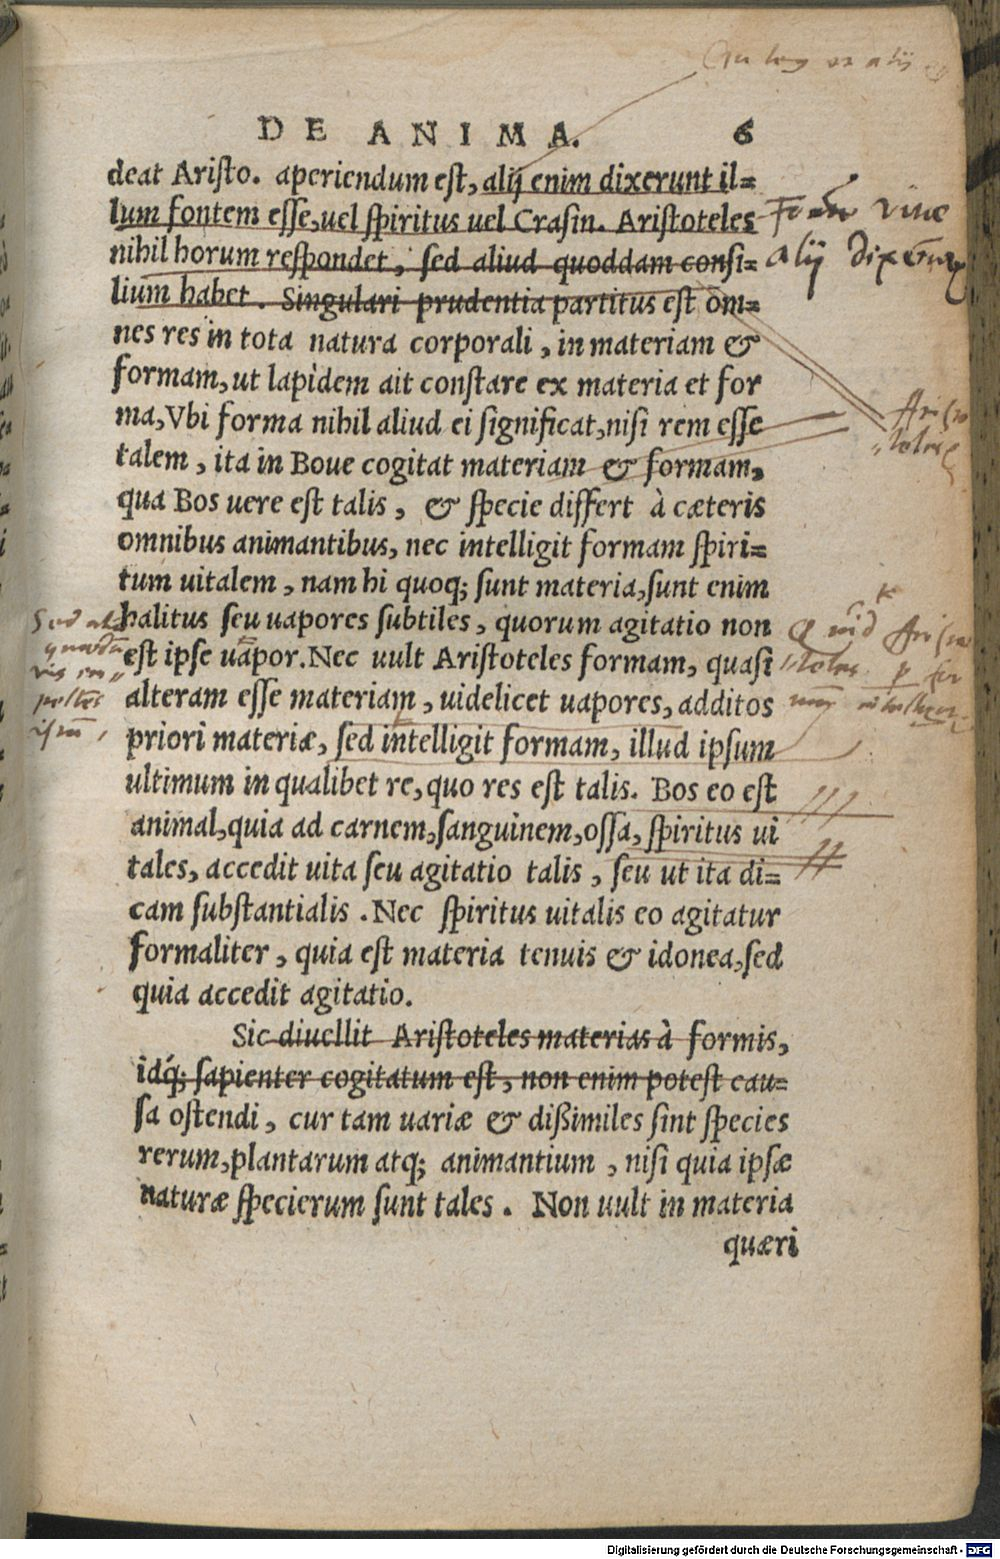 DE ANIMA. 6
deat Aristo. aperiendum est, alij enim dixerunt il=
lum fontem esse, uel spiritus uel Crasin. Aristoteles
nihil horum respondet, sed aliud quoddam consi=
lium habet. Singulari prudentia partitus est om=
nes res in tota natura corporali, in materiam &
formam, ut lapidem ait constare ex materia et for
ma, Vbi forma nihil aliud ei significat, nisi rem esse
talem, ita in Boue cogitat materiam & formam,
qua Bos uere est talis, & specie differt à cæteris
omnibus animantibus, nec intelligit formam spiri=
tum uitalem, nam hi quoq; sunt materia, sunt enim
halitus seu uapores subtiles, quorum agitatio non
est ipse uapor. Nec uult Aristoteles formam, quasi
alteram esse materiam, uidelicet uapores, additos
priori materiæ, sed intelligit formam, illud ipsum
ultimum in qualibet re, quo res est talis. Bos eo est
animal, quia ad carnem, sanguinem, ossa, spiritus ui
tales, accedit uita seu agitatio talis, seu ut ita di=
cam substantialis. Nec spiritus uitalis eo agitatur
formaliter, quia est materia tenuis & idonea, sed
quia accedit agitatio.
Sic diuellit Aristoteles materias à formis,
idq́; sapienter cogitatum est, non enim potest cau=
sa ostendi, cur tam uariæ & dißimiles sint species
rerum, plantarum atq; animantium, nisi quia ipsæ
naturæ specierum sunt tales. Non uult in materia
quæri
alij
Aristo
toteles
Quid Aristo
toteles
Digitalisierung gefördert durch die Deutsche Forschungsgemeinschaft - DFG